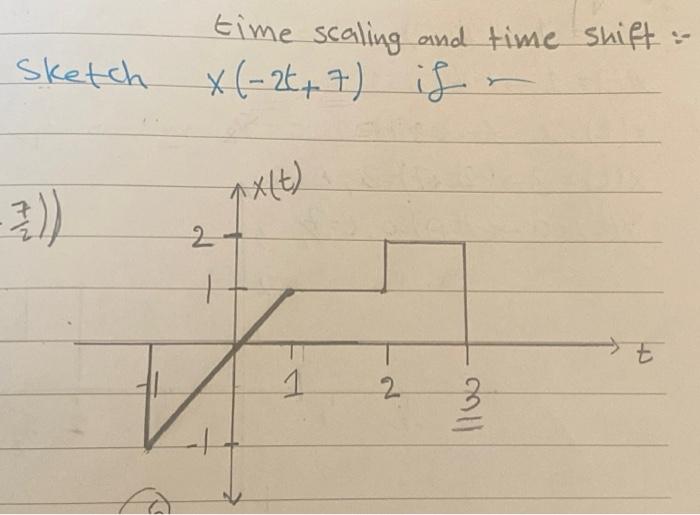 time scaling and time shift :-
Sketch x(-2t+7) if
x(t)
7/2))
2
1
t
-1
1
2
3
-1